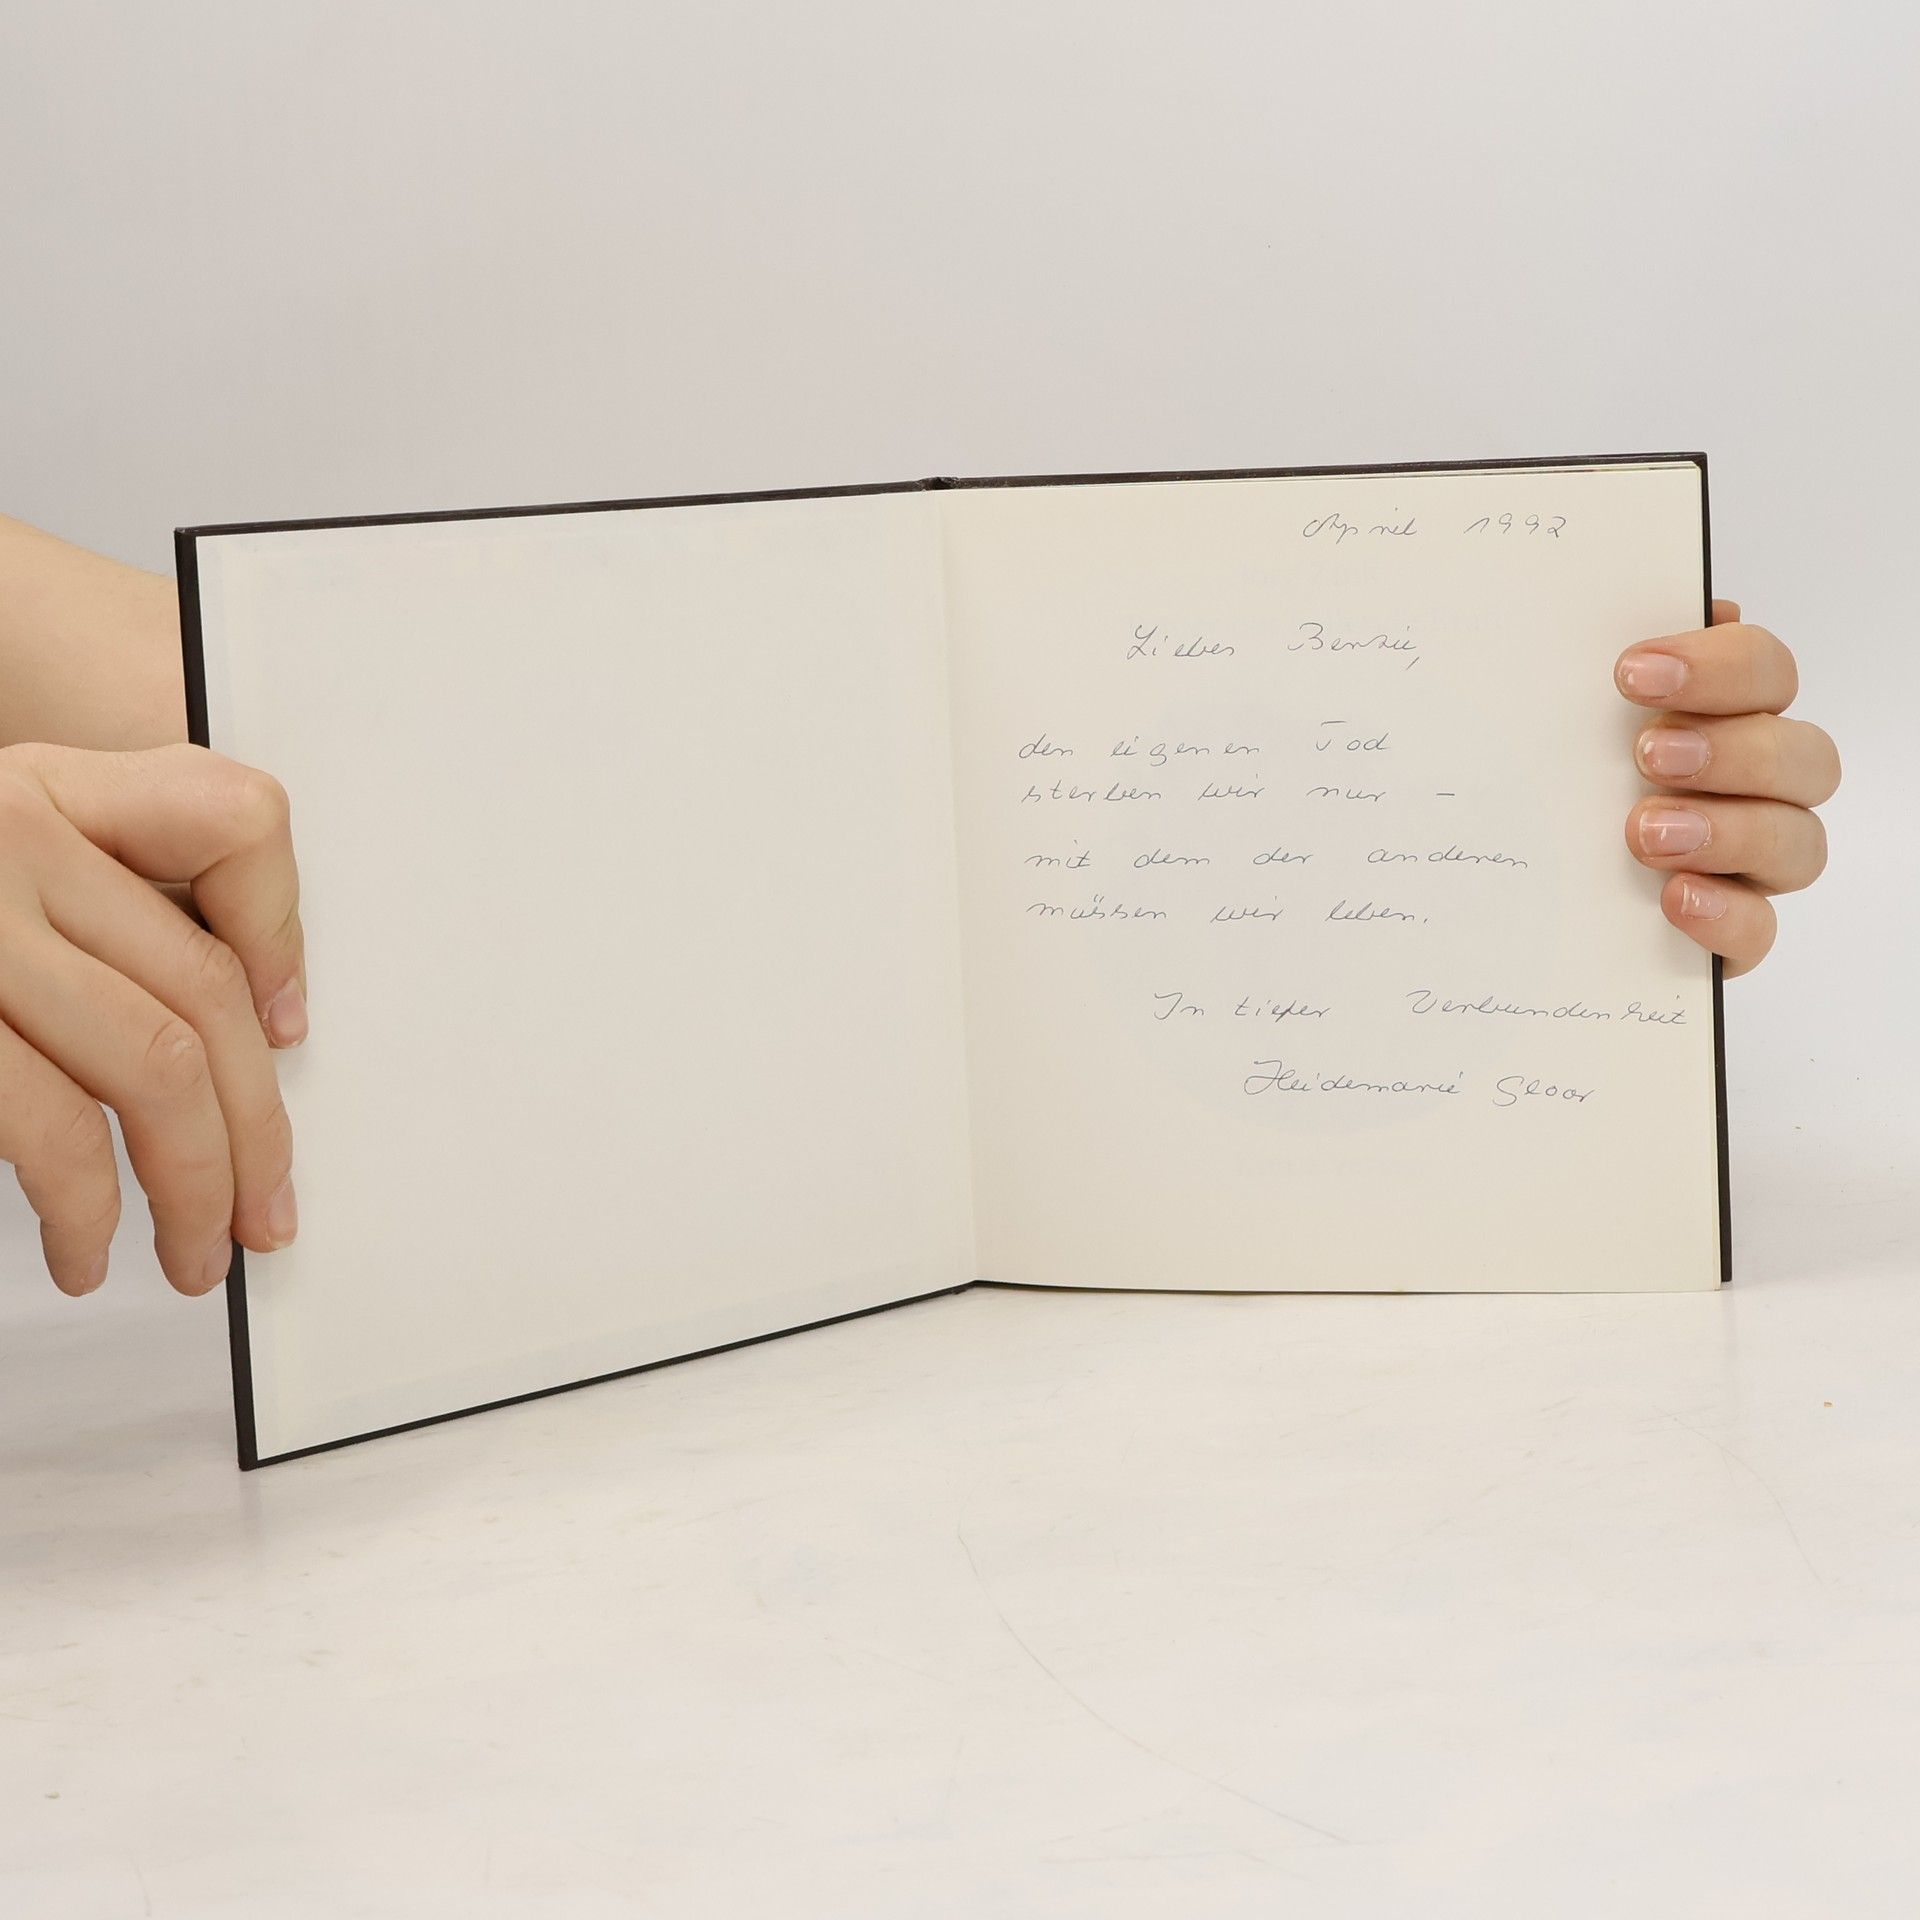 April 1992
Liebes Bensii,
den eigenen Tod
sterben wir nur –
mit dem der anderen
müssen wir leben.
In tiefer Verbundenheit
Heidemarie Gloor